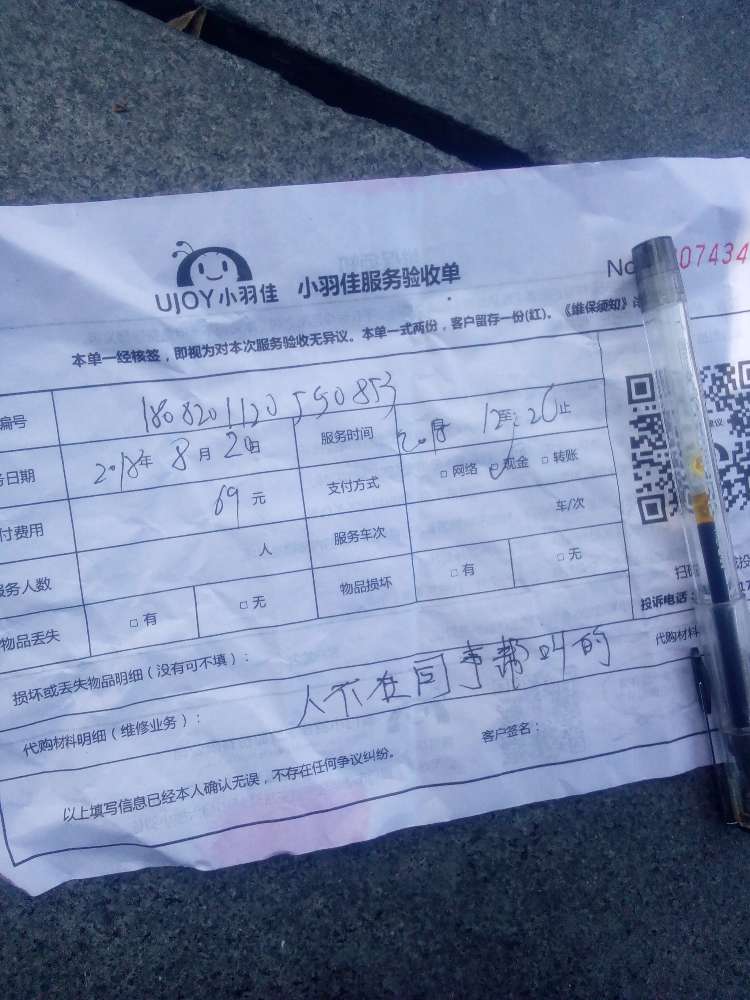 UJOY小羽佳 小羽佳服务验收单 No 07434
本单一经核签，即视为对本次服务验收无异议。本单一式两份，客户留存一份(红)。《维保须知》
编号 1808201120550853
务日期 2018年 8月 20日 服务时间 至 12:20止
付费用 69元 支付方式 □网络 现金 □转账
服务人数 人 服务车次 车/次
物品丢失 □有 □无 物品损坏 □有 □无
扫码
投诉电话：
损坏或丢失物品明细（没有可不填）： 代购材料
代购材料明细（维修业务）： 人不在同事帮叫的
以上填写信息已经本人确认无误，不存在任何争议纠纷。 客户签名：